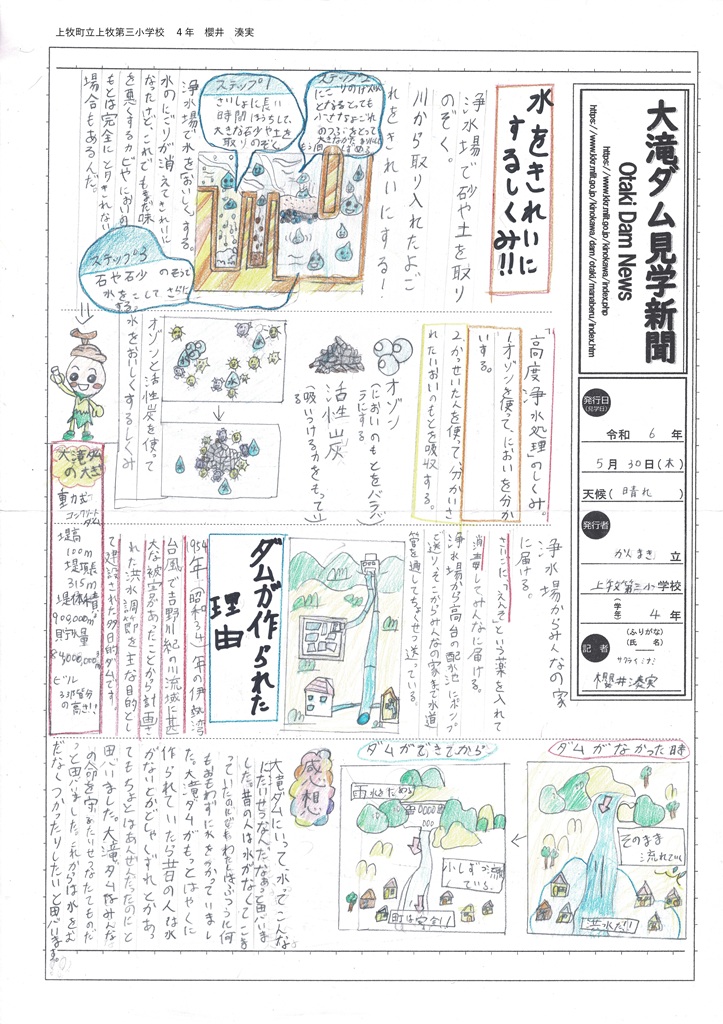 上牧町立上牧第三小学校　4年　櫻井　湊実
大滝ダム見学新聞
Otaki Dam News
https://www.kkr.mlit.go.jp/kinokawa/index.php
https://www.kkr.mlit.go.jp/kinokawa/dam/otaki/manaberu/index.htm
発行日
(見学日)
令和　6　年
5月30日(木)
天候(晴れ)
発行者
かんまき　立
上牧第三小学校
(学年)　4　年
記者
(ふりがな)
(氏名)
櫻井湊実
水をきれいに
するしくみ!!
浄水場で砂や土を取り
のぞく。
川から取り入れたよご
れをきれいにする!
ステップ1
さいしょに長い
時間
大きな石砂や土を
取りのぞく
ステップ2
となるとても
小さなよごれ
のつぶをとって
ステップ3
石や石少
水をこして さらに
浄水場で水をおいしくする。
水のにごりが消えてきれいに
なったけど、これでもまだ味
を悪くするカビやにおいの
もとは完全にとりきれない
場合もあるんだ。
「高度浄水処理」のしくみ。
1.オゾンを使って、においを分か
いする。
2.かっせいたんを使って、分かいさ
れたにおいのもとを吸収する。
オゾン
(においのもとをバラバ
ラにする
活性炭
(吸いつける力をもっている
オゾンと活性炭を使って
水をおいしくするしくみ
大滝ダム
の大きさ
重力式
コンクリート
ダム
堤高
100m
堤頂長
315m
堤体積
貯水量
ビル
33階分
の高さ!!
浄水場からみんなの家
に届ける。
さいごに、「えんそ」という薬を入れて
消毒してみんなに届ける。
浄水場から高台の配水池にポンプ
で送り、そこからみんなの家まで水道
管を通してちょくせつ送っている
ダムが作られた
理由
1959年(昭和34)年の伊勢湾
台風で吉野川紀の川流域に甚
大な被害があたことから計画さ
れた洪水調節を主な目的とし
て建設された多目的ダムです。
ダムがなかった時
そのまま
流れていく
洪水だ!!
ダムができてから
雨水をためる
小しずつ流
している。
町は安全!!
感想
大滝ダムにいって、水って、こんな
にたいせつなんだなあっと思いま
した。昔の人は水がなくてこま
っていたのに
もおもわずに水をつかっていまし
た。大滝ダムがもっとはやくに
作られていたら昔の人は水
がないとかどしゃくずれとかあっ
てもちょとはあんぜんだったのにと
思いました。大滝ダムはみんな
の命を守るたいせつなたてものだ
っと思いました。これからは水をむ
だなくつかったりしたいと思います。